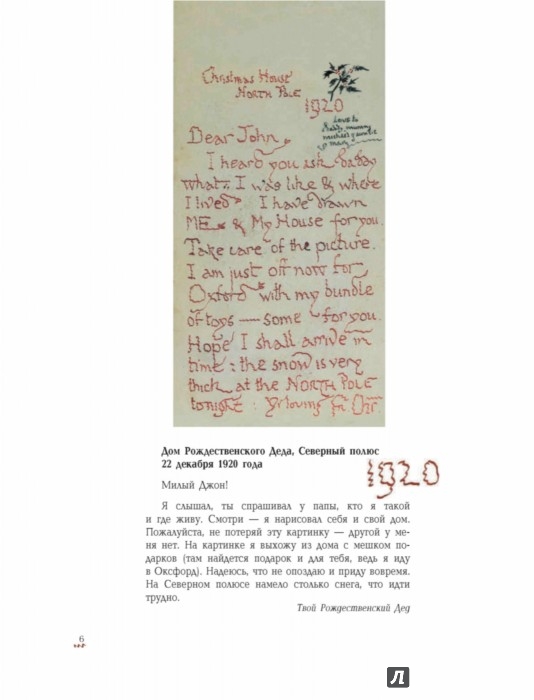 Christmas House
NORTH POLE
1920
Love to
daddy, mummy
michael & auntie
mary
Dear John,
I heard you ask daddy
what I was like & where
I lived. I have drawn
ME & My House for you.
Take care of the picture.
I am just off now for
Oxford with my bundle
of toys — some for you.
Hope I shall arrive in
time: the snow is very
thick at the NORTH POLE
tonight: Yr loving Fr. Chr.
Дом Рождественского Деда, Северный полюс
22 декабря 1920 года
1920
Милый Джон!
Я слышал, ты спрашивал у папы, кто я такой
и где живу. Смотри — я нарисовал себя и свой дом.
Пожалуйста, не потеряй эту картинку — другой у ме-
ня нет. На картинке я выхожу из дома с мешком по-
дарков (там найдется подарок и для тебя, ведь я иду
в Оксфорд). Надеюсь, что не опоздаю и приду вовремя.
На Северном полюсе намело столько снега, что идти
трудно.
Твой Рождественский Дед
6
Л